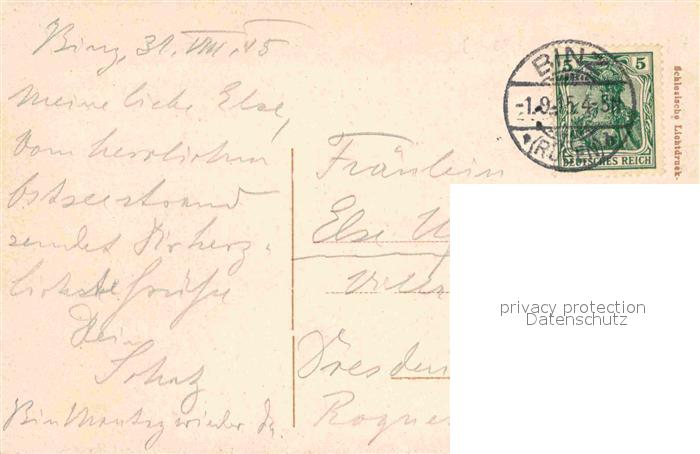 Binz, 31. VIII. 15
Meine liebe Else,
vom herrlichen
Ostseestrand
sendet Dir herz-
lichste Grüße
Dein
Schatz
Bin Montag wieder da.
Fräulein
Else
Villa
Dresden
BINZ
-1.9.15.4-5N
(RÜGEN)
5 5
DEUTSCHES REICH
Schlesische Lichtdruck-
privacy protection
Datenschutz